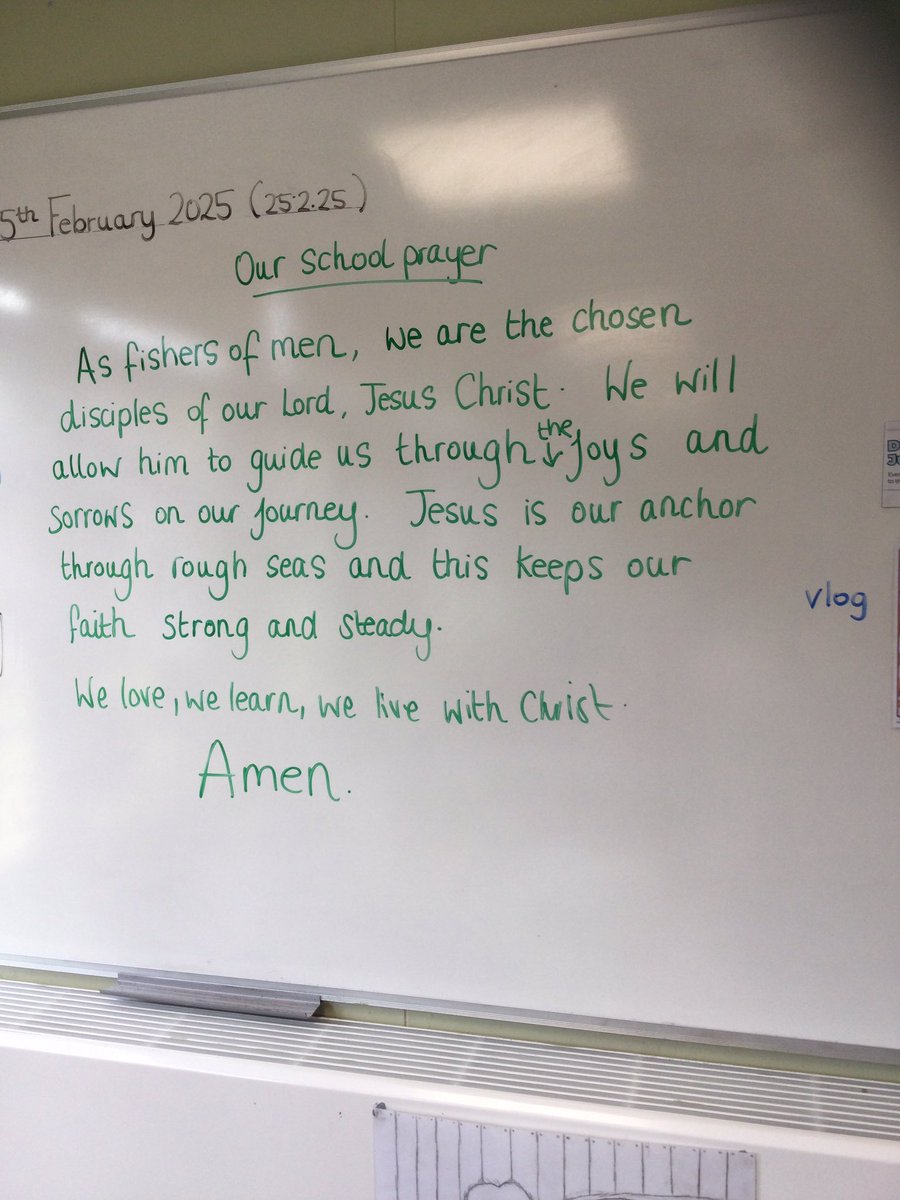 5th February 2025 (25.2.25)
Our school prayer
As fishers of men, we are the chosen
disciples of our Lord, Jesus Christ. We will
allow him to guide us through the joys and
sorrows on our journey. Jesus is our anchor
through rough seas and this keeps our
faith strong and steady.
We love, we learn, we live with Christ.
Amen.
vlog